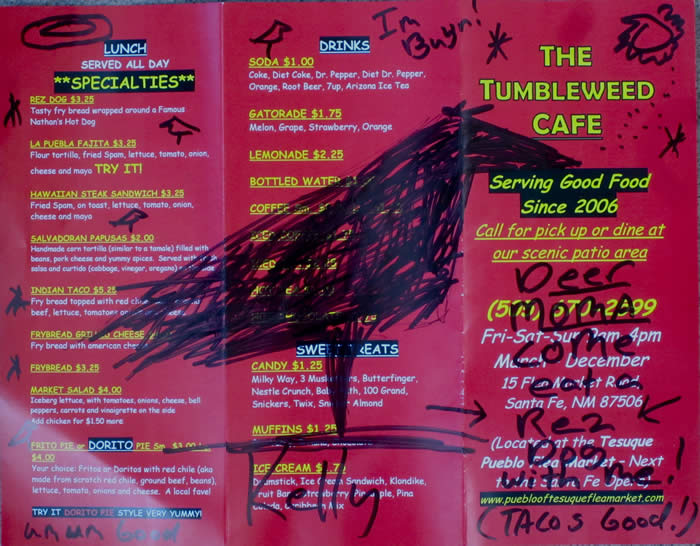 LUNCH
SERVED ALL DAY
**SPECIALTIES**
REZ DOG $3.25
Tasty fry bread wrapped around a Famous
Nathan's Hot Dog
LA PUEBLA FAJITA $3.25
Flour tortilla, fried Spam, lettuce, tomato, onion,
cheese and mayo TRY IT!
HAWAIIAN STEAK SANDWICH $3.25
Fried Spam, on toast, lettuce, tomato, onion,
cheese and mayo
SALVADORAN PAPUSAS $2.00
Handmade corn tortilla (similar to a tamale) filled with
beans, pork cheese and yummy spices. Served with
salsa and curtido (cabbage, vinegar, oregano)
INDIAN TACO $5.25
Fry bread topped with red chile
beef, lettuce, tomato
FRYBREAD GRILLED CHEESE
Fry bread with american cheese
FRYBREAD $3.25
MARKET SALAD $4.00
Iceberg lettuce, with tomatoes, onions, cheese, bell
peppers, carrots and vinaigrette on the side
Add chicken for $1.50 more
FRITO PIE or DORITO PIE Sm. $3.00
$4.00
Your choice: Fritos or Doritos with red chile (aka
made from scratch red chile, ground beef, beans),
lettuce, tomato, onions and cheese. A local fave!
TRY IT DORITO PIE STYLE VERY YUMMY!
umum Good
I'm
Buyn!
DRINKS
SODA $1.00
Coke, Diet Coke, Dr. Pepper, Diet Dr. Pepper,
Orange, Root Beer, 7up, Arizona Ice Tea
GATORADE $1.75
Melon, Grape, Strawberry, Orange
LEMONADE $2.25
BOTTLED WATER
COFFEE Sm.
SWEET TREATS
CANDY $1.25
Milky Way, 3 Musketeers, Butterfinger,
Nestle Crunch, Baby Ruth, 100 Grand,
Snickers, Twix, Snicker Almond
MUFFINS $1.25
ICE CREAM
Drumstick, Ice Cream Sandwich, Klondike,
Fruit Bars: Strawberry, Pineapple, Pina
Colada, Caribbean Mix
Kelly
THE
TUMBLEWEED
CAFE
Serving Good Food
Since 2006
Call for pick up or dine at
our scenic patio area
Fri-Sat-Sun 9am-4pm
March - December
15 Flea Market Road
Santa Fe, NM 87506
(Located at the Tesuque
Pueblo Flea Market - Next
to the Santa Fe Opera)
www.puebloftesuquefleamarket.com
Deer
Mama
come
eat a
Rez
Dog
with me!
(TACOS Good!)